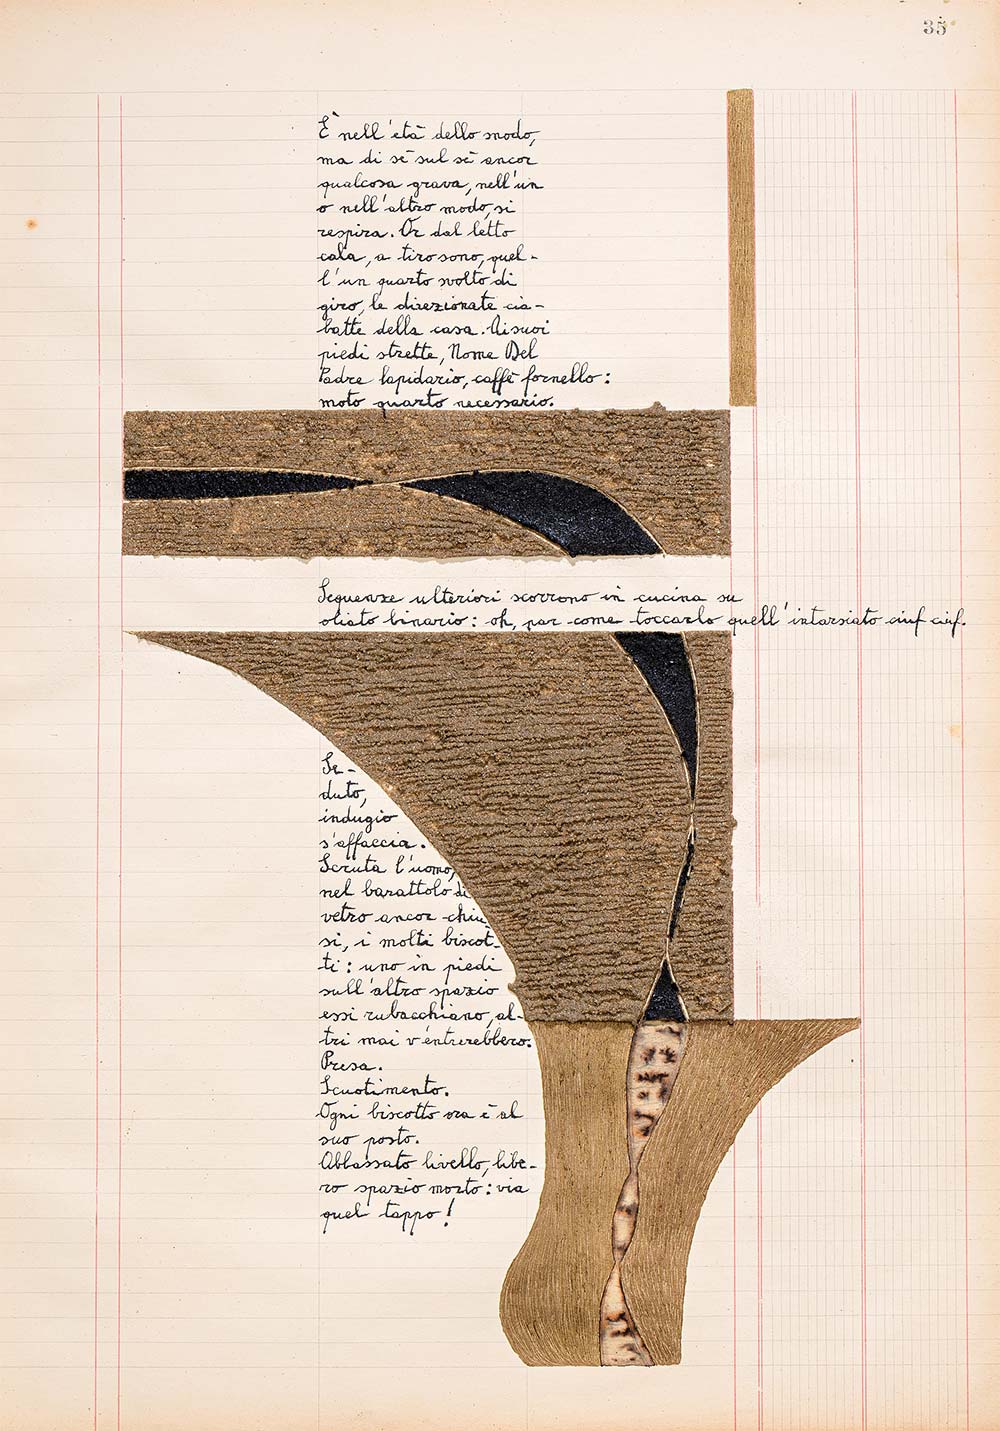 35
È nell'età dello snodo,
ma di sè sul sè ancor
qualcosa grava, nell'un
o nell'altro modo, si
respira. Or dal letto
cala, a tiro sono, quel-
l'un quarto svolto di
giro, le direzionate cia-
batte della casa. Ai suoi
piedi strette, Nome Del
Padre lapidario, caffè fornello:
moto quarto necessario.
Sequenze ulteriori scorrono in cucina su
oliato binario: oh, par come toccarlo quell'intarsiato ciuf ciuf.
Se-
duto,
indugio
s'affaccia.
Scruta l'uomo,
nel barattolo di
vetro ancor chiu
si, i molti biscot-
ti: uno in piedi
sull'altro spazio
essi rubacchiano, al-
tri mai v'entrerebbero.
Presa.
Scuotimento.
Ogni biscotto ora è al
suo posto.
Abbassato livello, libe-
ro spazio morto: via
quel tappo!